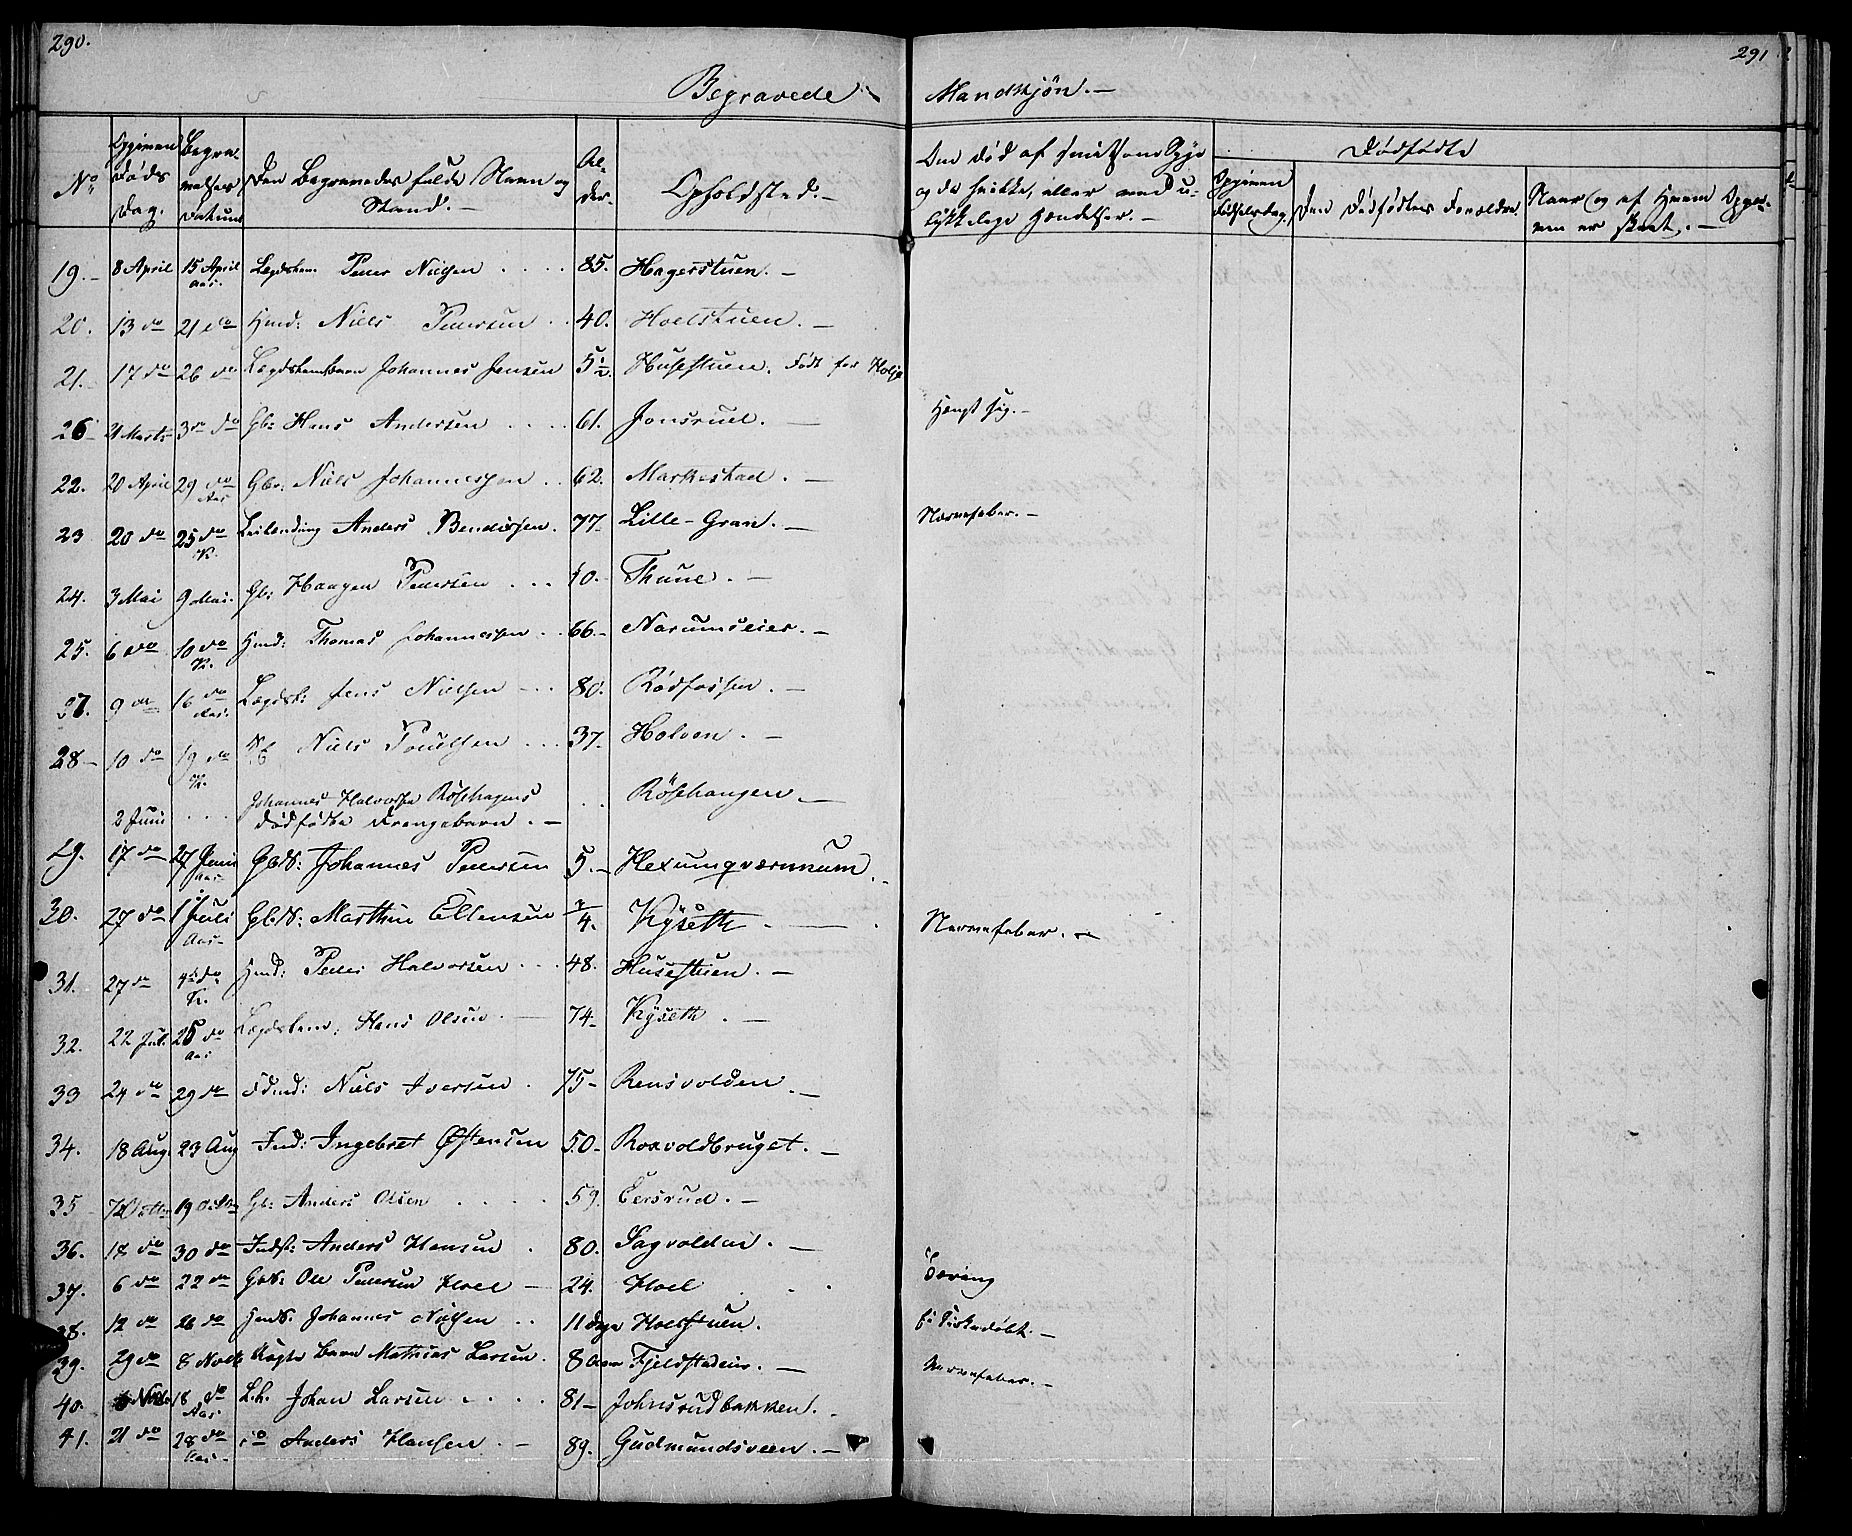 290.
291
Begravede Mandkjøn.
No Opgiven Døds Dag. Begravelses Datum Den Begravedes fulde Navn og Stand. Alder. Opholdsted. Om død af smitsom Syge og da hvilke, eller ved ulykkelige Hændelser. Dødfødte
Opgiven Fødselsdag. Den Dødfødtes Forældre. Naar og af Hvem Opgaven er skeet.
19. 8 April 15 April Aas. Lægdslem Peder Nielsen 85. Hagerstuen.
20. 13 do 21 do Hmd: Niels Pedersen 40. Hoelstuen.
21. 17 do 26 do Johannes Jensen 5 1/2 Husestuen. Født før
26 21 Marts 3 do Gbr: Hans Andersen 61. Jonsrud. Hængt sig.
22. 20 April 29 do Aas Gbr: Niels Johannessen 62. Markestad.
23 20 do 25 do K. Leilending Anders Bendixsen. 77 Lille-Gran. Nervefeber.
24. 3 Mai 9 Mai. Gbr: Haagen Pedersen 40. Thune.
25. 6 do 10 do K. Hmd: Thomas Johannessen 66. Narumseier.
27. 9 do 16 do Aas. Lægdsl: Jens Nielsen 80. Rødfossen.
28 10 do 19 do K. Niels Poulsen 37. Holven.
2 Juni Johannes Halvorsen Røsehagens Dødfødte Drengebarn. Røsehaugen
29. 17 do 27 Juni Aas Gbds: Johannes Pedersen 5. Hexumqværnmum.
30. 27 do 1 Juli Aas Gbds: Marthin Ellensen 3/4. Kjøseth. Nervefeber.
31. 27 do 4 do K. Hmd: Peder Halvorsen 48. Husestuen.
32. 22 Jul. 25 do Aas Lægdslem: Hans Olsen 74 Kjøseth.
33 24 do 29 do Niels Iversen 75 Rensvolden
34. 18 Aug. 23 Aug Ind: Ingebret Østensen 50 Roxvoldbruget.
35 7 Octb 19 Octb Gbr: Anders Olsen 59. Eersrud.
36. 18 do 30 do Indst: Anders Hansen 80. Sagvolden.
37. 6 do 22 do Gbds: Ole Pedersen Hoel 24. Hoel Tæring
38. 12 do 26 do Hmds: Johannes Nielsen 11 dage Hoelstuen. Ei Kirkedøbt.
39. 29 do 8 Novb Uægte Barn Mathias Larsen. 8 Aar Fjeldstadeier. Nervefeber.
40. Novb 18 do Aas L.l. Johan Larsen 81 Johnsrudbakken.
41. 21 do 28 do Aas do Anders Hansen. 89. Gudmundsveen.